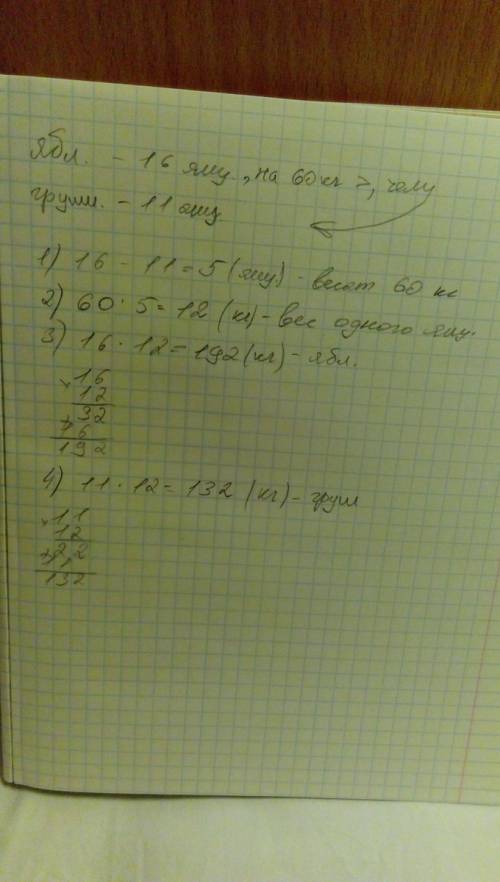 Ябл. - 16 ящ., на 60 кг >, чему
груш. - 11 ящ.
1) 16 - 11 = 5 (ящ.) - весят 60 кг
2) 60 · 5 = 12 (кг) - вес одного ящ.
3) 16 · 12 = 192 (кг) - ябл.
× 16
12
32
+ 16
192
4) 11 · 12 = 132 (кг) - груш
× 11
12
22
+ 11
132